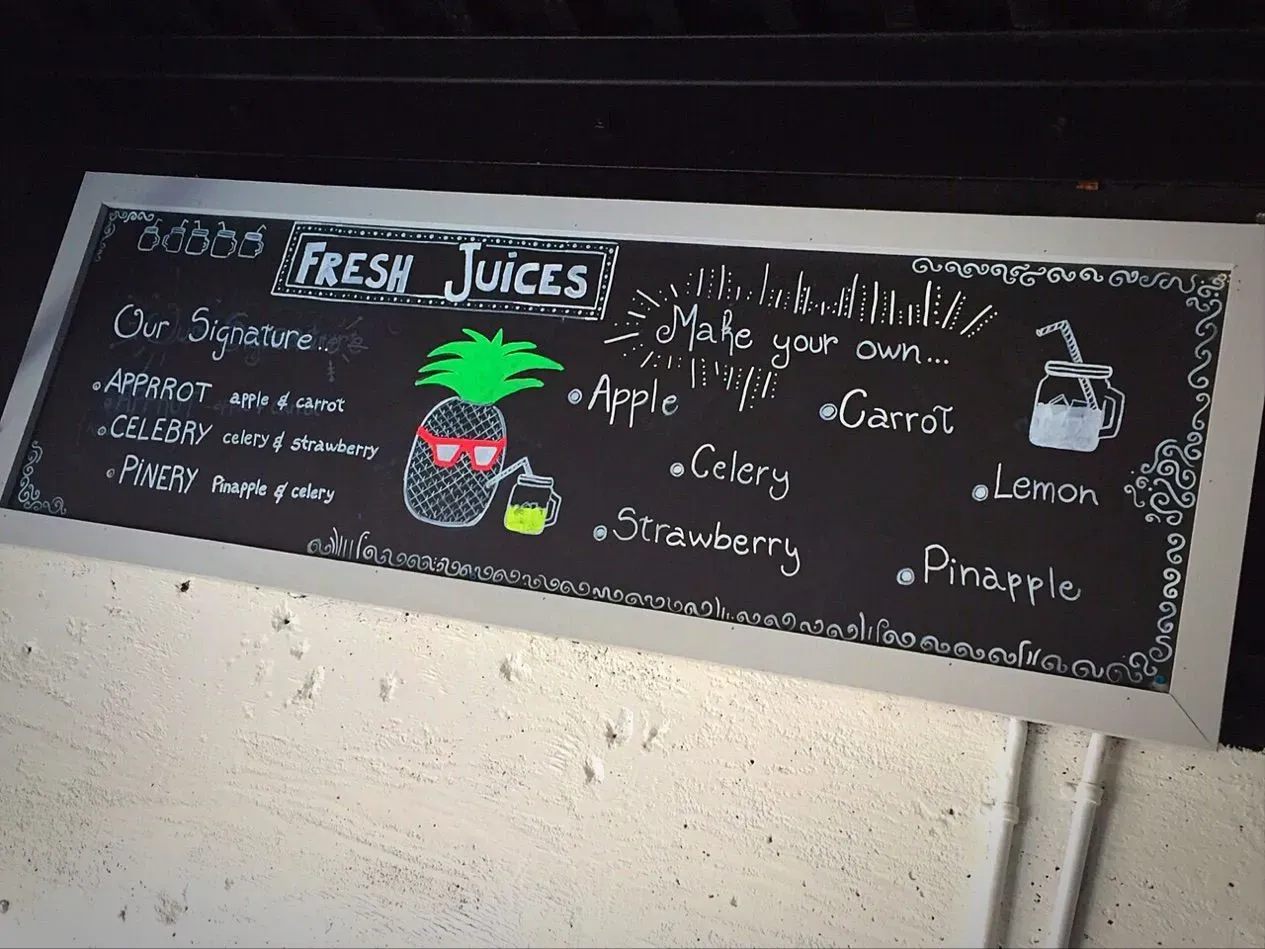 FRESH JUICES
Our Signature...
APPRROT apple & carrot
CELEBRY celery & strawberry
PINERY Pinapple & celery
Make your own...
Apple
Carrot
Celery
Lemon
Strawberry
Pinapple